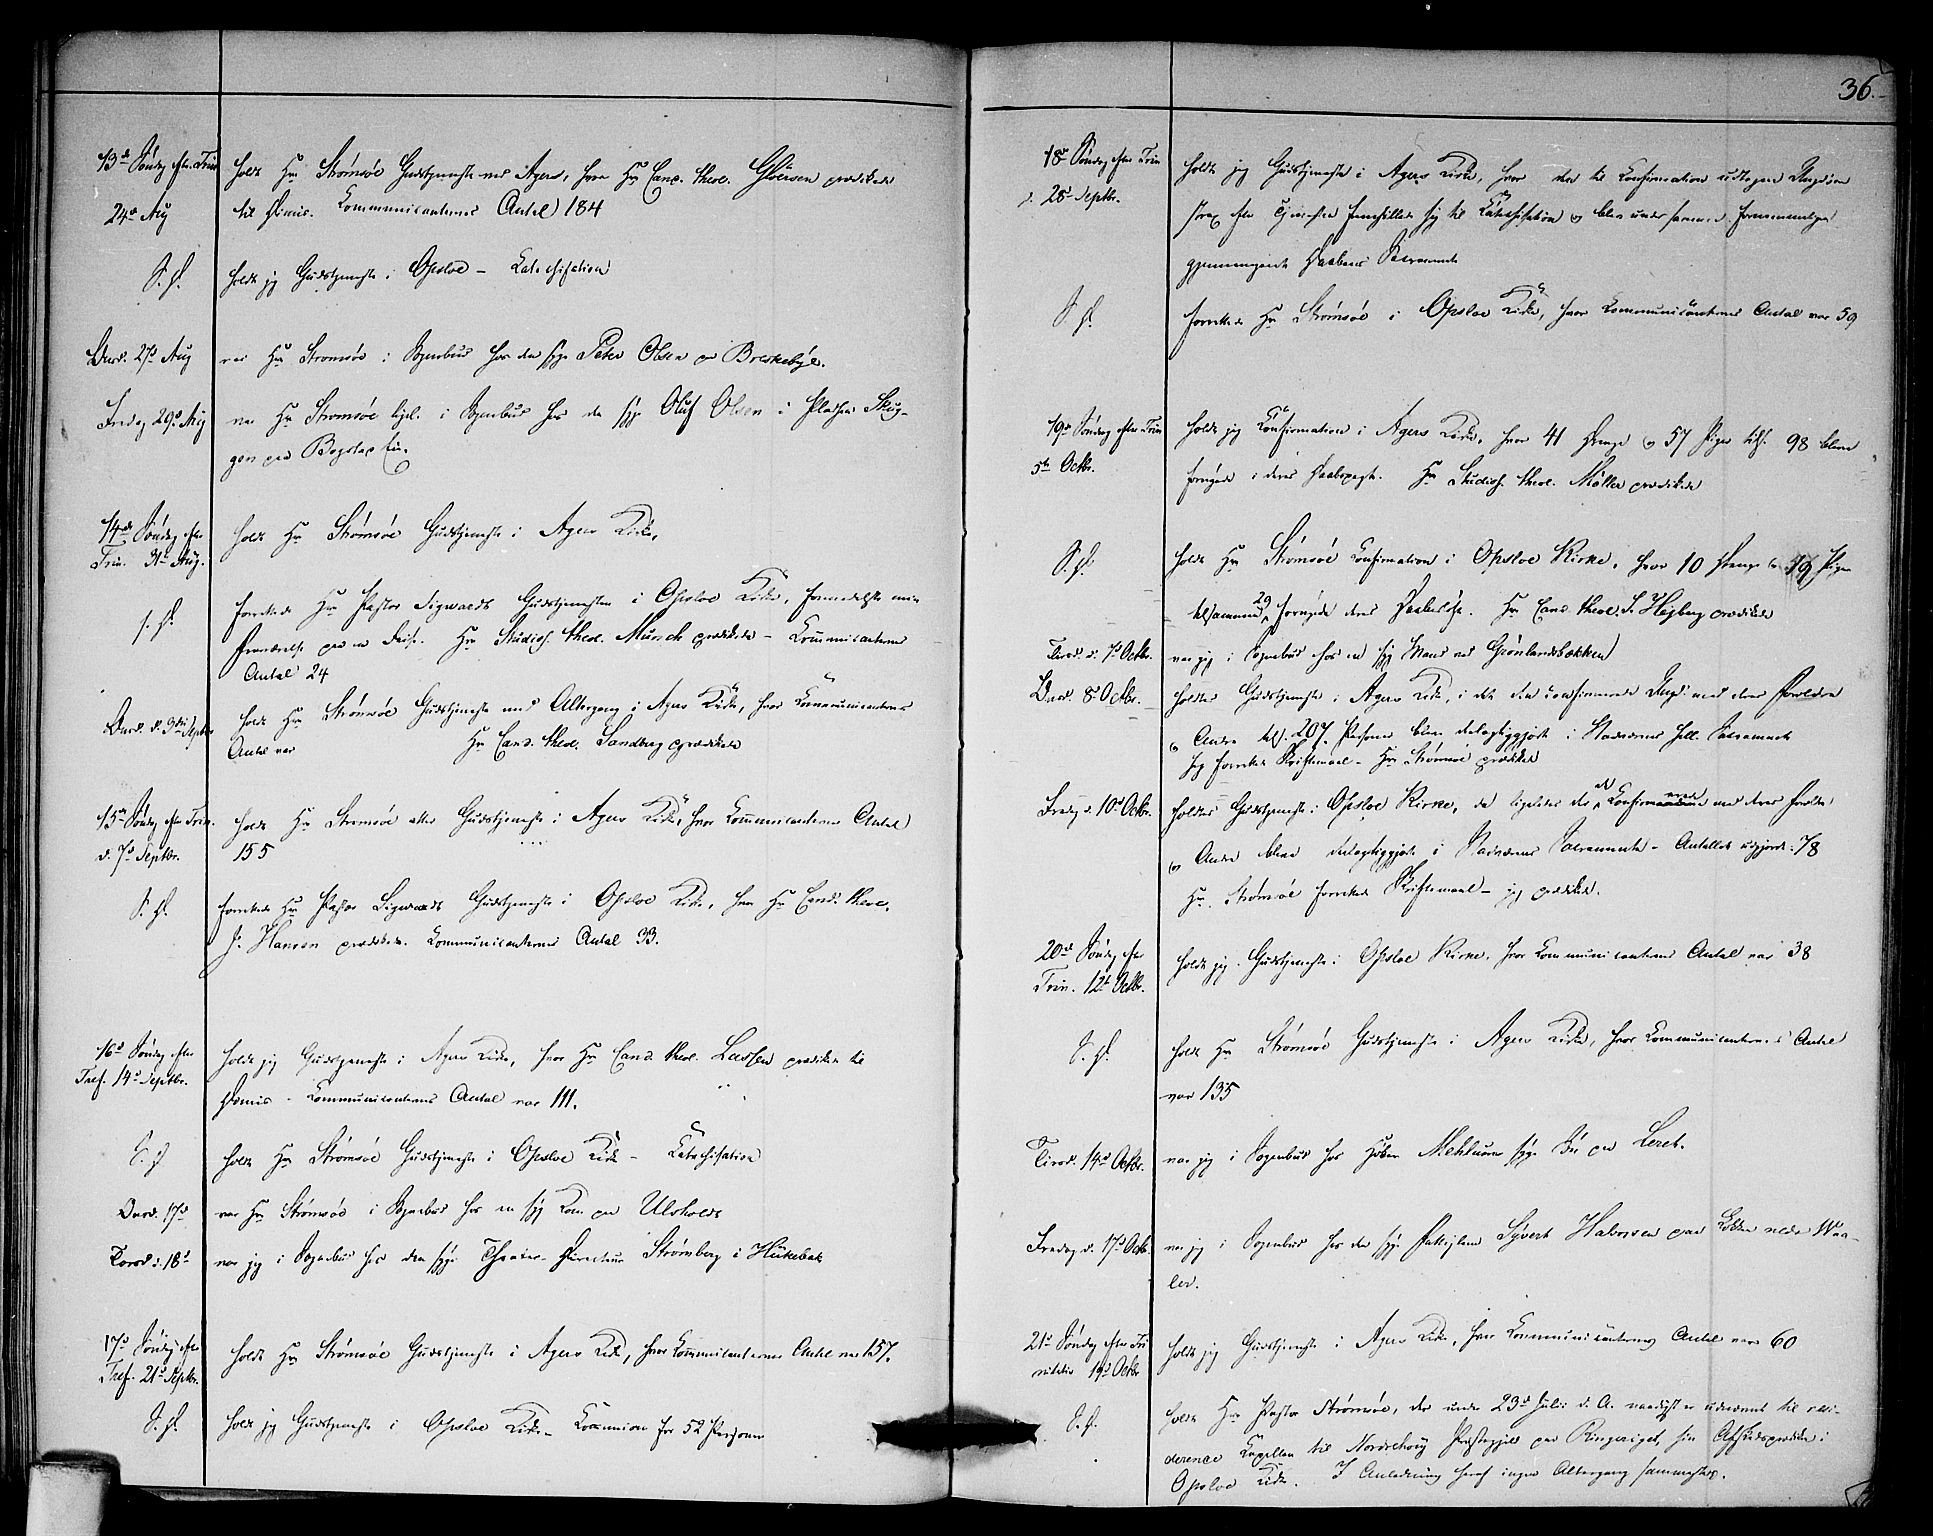 36.
13de Søndag efter Trin
24de Aug
holdt Hr Strømsøe Gudstjeneste ved Agers, hvor Hr Cand. theol. Gløersen prædikede
til Dimis. Kommunicanternes Antal 184
S. D.
holdt jeg Gudstjeneste i Opsloe - Katechisation
Onsd. 27d Aug
var Hr Strømsøe i Sognebud hos den syge Peter Olsen paa Breskebye.
Fredag 29d Aug
var Hr Strømsøe ligel. i Sognebud hos den syge Oluf Olsen i Pladsen Skug-
gen paa Bogstad
14de Søndag efter
Trin. 31te Aug.
holdt Hr Strømsøe Gudstjeneste i Agers Kirke,
S. D.
forrettede Hr Pastor Sigwardt Gudstjenesten i Opsloe Kirke, formedelst min
Fraværelse paa en Reise. Hr Studios. theol. Munch prædikede - Kommunicanternes
Antal 24
Onsd. d. 3die Septbr
holdt Hr Strømsøe Gudstjeneste med Altergang i Agers Kirke, hvor Kommunicanternes
Antal var Hr Cand. theol. Sandberg prædikede
15de Søndag efter Trin.
d. 7d Septbr.
holdt Hr Strømsøe atter Gudstjeneste i Agers Kirke, hvor Kommunicanternes Antal
155
S. D.
forrettede Hr Pastor Sigwardt Gudstjeneste i Opsloe Kirke, hvor Hr Cand. theol.
J. Hansen prædikede. Kommunicanternes Antal 33.
16d Søndag efter
Tref. 14d Septbr.
holdt jeg Gudstjeneste i Agers Kirke, hvor Hr Cand. theol. Lassen prædikede til
Dimis - Kommunicanternes Antal var 111.
S. D.
holdt Hr Strømsøe Gudstjeneste i Opsloe Kirke - Katechisation
Onsd. 17d
var Hr Strømsøe i Sognebud hos en syg Kone paa Ulsholdt
Torsd. d. 18d
var jeg i Sognebud hos den syge Theater-Directeur Strømberg i Hükebak
17d Søndag efter
Tref. 21d Septbr.
holdt Hr Strømsøe Gudstjeneste i Agers Kirke, hvor Kommunicanternes Antal var 157.
S. D.
holdt jeg Gudstjeneste i Opsloe Kirke - Kommunion for 52 Personer
18d Søndag efter Trin
d. 28d Septbr.
holdt jeg Gudstjeneste i Agers Kirke, hvor den til Confirmation udtagne Ungdom
strax efter Tjenesten fremstillede sig til Katechisation og blev under samme
gjennemgaaet Daabens Sacramente
S. D.
forrettede Hr Strømsøe i Opsloe Kirke, hvor Kommunicanternes Antal var 59
19d Søndag efter Trin
5te Octbr.
holdt jeg Confirmation i Agers Kirke, hvor 41 Drenge og 57 Piger tils. 98 bleve
fornyede i deres Daabspagt. Hr Studios. theol. Møller prædikede
S. D.
holdt Hr Strømsøe Confirmation i Opsloe Kirke, hvor 10 Drenge og 19 Piger
tilsammen 29 fornyede deres Daabsløfte. Hr Cand. theol. S. Hejberg prædikede
Tirsd. d. 7d Octbr.
var jeg i Sognebud hos en syg Mand ved Grønlandsbækken
Onsd. 8d Octbr.
holdtes Gudstjeneste i Agers Kirke, i det den confirmerede Ungd. med deres Forældre
og Andre tils. 207 Personer bleve deelagtiggjorte i Nadverens hell. Sacramente
Jeg forrettede Skriftemaal - Hr Strømsøe prædikede
Fredag d. 10d Octbr.
holdtes Gudstjeneste i Opsloe Kirke, da ligeledes de Confirmerede med deres Forældre
og Andre bleve deelagtiggjorte i Nadverens Sacramente - Antallet udgjorde 78
Hr. Strømsøe forrettede Skriftemaal - jeg prædikede.
20d Søndag efter
Trin. 12d Octbr.
holdt jeg Gudstjeneste i Opsloe Kirke, hvor Kommunicanternes Antal var 38
S. D.
holdt Hr Strømsøe Gudstjeneste i Agers Kirke, hvor Kommunicanternes Antal
var 135
Tirsd. 14d Octbr.
var jeg i Sognebud hos Mehlums syge paa Leret.
Fredag d. 17d Octb.
var jeg i Sognebud hos den syge Syvert Halvorsen paa Løkken nedre Waa-
ler.
21d Søndag efter Tri
nitatis 19d Octbr
holdt jeg Gudstjeneste i Agers Kirke, hvor Kommunicanternes Antal var 60
S. D.
holdt Hr Pastor Strømsøe, der under 23d Julii d. A. naadigst er udnævnt til resi-
derende Capellan til Nordrehoug Præstegjeld paa Ringeriget, sin Afskedsprædiken i
Opsloe Kirke. I Anledning heraf ingen Altergang sammesteds.